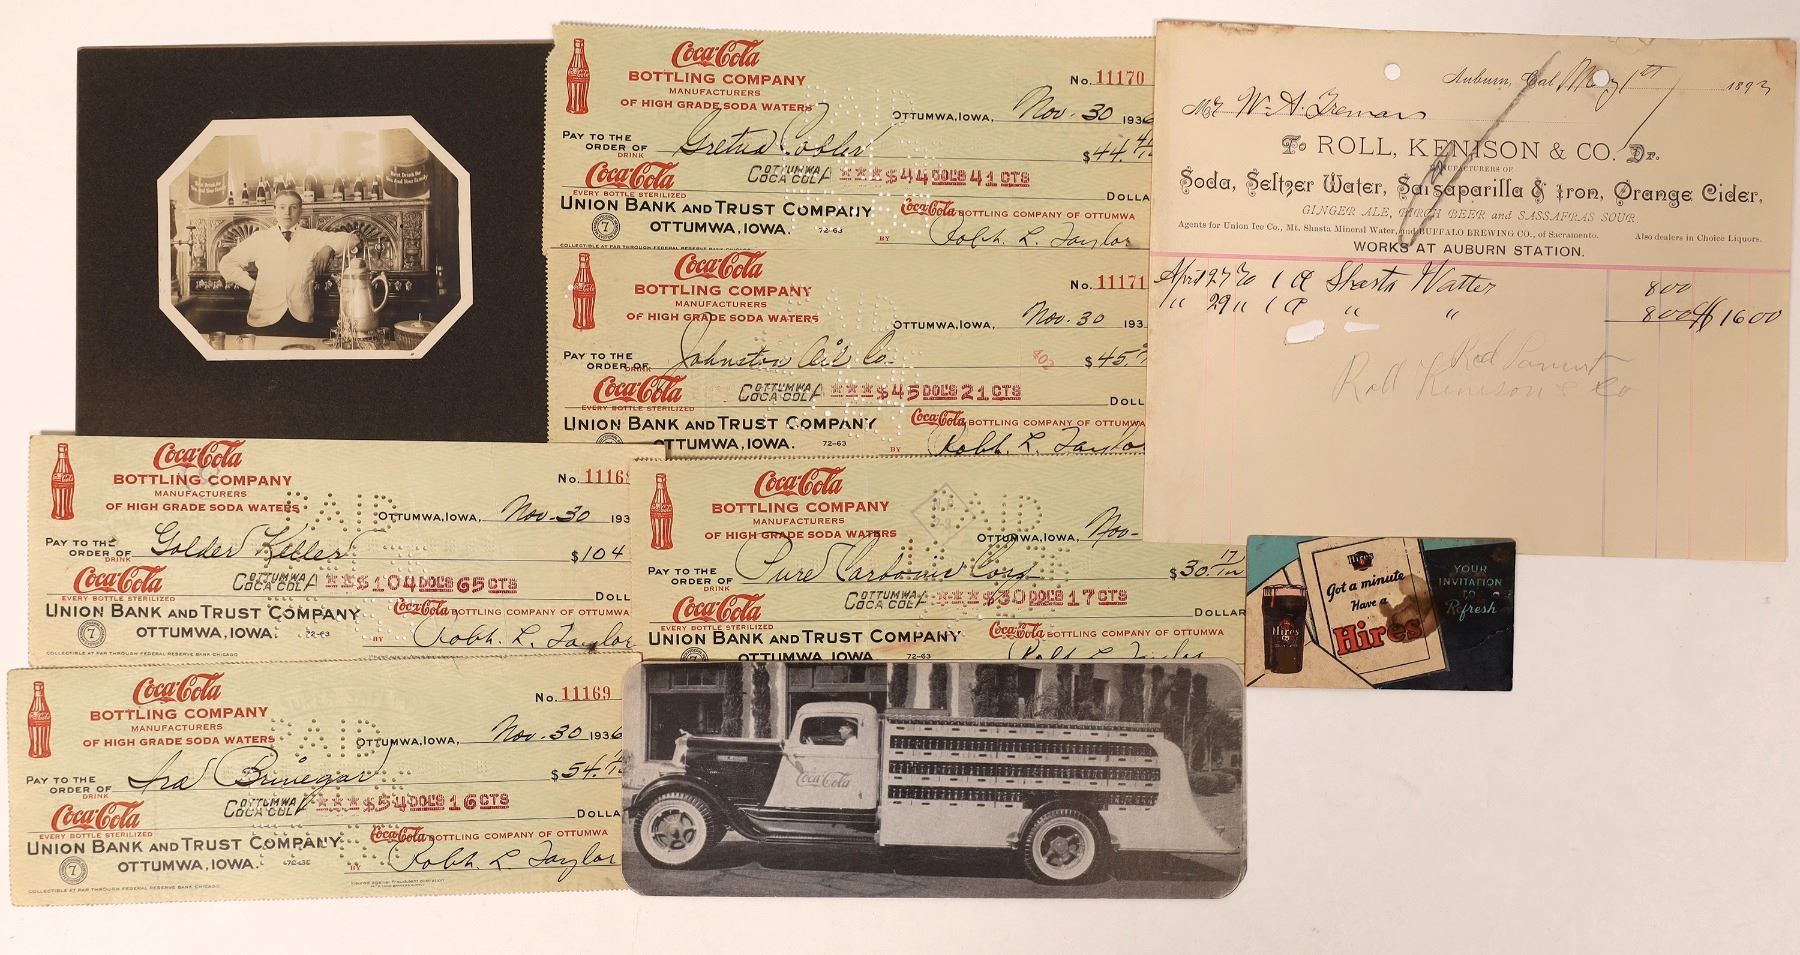 Coca-Cola
BOTTLING COMPANY
MANUFACTURERS
OF HIGH GRADE SODA WATERS
No. 11170
OTTUMWA, IOWA, Nov. 30 1936
PAY TO THE
ORDER OF Gretna Cobler $44.41
DRINK
Coca-Cola
EVERY BOTTLE STERILIZED
OTTUMWA
COCA COLA ***$44DOL'S41CTS
DOLLA
UNION BANK AND TRUST COMPANY
OTTUMWA, IOWA. 72-63
Coca-Cola BOTTLING COMPANY OF OTTUMWA
BY Robh. L. Taylor
7
COLLECTIBLE AT PAR THROUGH FEDERAL RESERVE BANK CHICAGO
PAID
Coca-Cola
BOTTLING COMPANY
MANUFACTURERS
OF HIGH GRADE SODA WATERS
No. 11171
OTTUMWA, IOWA, Nov. 30 193
402
PAY TO THE
ORDER OF Johnston Oil Co. $45.
DRINK
Coca-Cola
EVERY BOTTLE STERILIZED
OTTUMWA
COCA COLA ***$45DOL'S21CTS
DOLL
UNION BANK AND TRUST COMPANY
OTTUMWA, IOWA. 72-63
Coca-Cola BOTTLING COMPANY OF OTTUMWA
BY Robh. L. Taylo
Auburn, Cal May 1st 1893
Mr W. A. Freman
To ROLL, KENISON & CO. Dr.
MANUFACTURERS OF
Soda, Seltzer Water, Sarsaparilla & Iron, Orange Cider,
GINGER ALE, BIRCH BEER and SASSAFRAS SOUR
Agents for Union Ice Co., Mt. Shasta Mineral Water, and BUFFALO BREWING CO., of Sacramento. Also dealers in Choice Liquors.
WORKS AT AUBURN STATION.
April 27 To 1 Shasta Watter 800
" 29 " 1 " " 800 $16 00
Rec'd Paymt
Roll Kenison & Co
Coca-Cola
BOTTLING COMPANY
MANUFACTURERS
OF HIGH GRADE SODA WATERS
No. 1116
PAID
OTTUMWA, IOWA, Nov. 30 193
PAY TO THE
ORDER OF Golder Keller $104
DRINK
Coca-Cola
EVERY BOTTLE STERILIZED
OTTUMWA
COCA COLA **$104DOL'S65CTS
DOLL
UNION BANK AND TRUST COMPANY
OTTUMWA, IOWA. 72-63
Coca-Cola BOTTLING COMPANY OF OTTUMWA
BY Robh. L. Taylor
7
COLLECTIBLE AT PAR THROUGH FEDERAL RESERVE BANK CHICAGO
Coca-Cola
BOTTLING COMPANY
MANUFACTURERS
OF HIGH GRADE SODA WATERS
PAID
OTTUMWA, IOWA, Nov-
PAY TO THE
ORDER OF Pure Carbonic Corp $30.17
DRINK
Coca-Cola
EVERY BOTTLE STERILIZED
OTTUMWA
COCA COLA ***$30DOL'S17CTS
DOLLAR
UNION BANK AND TRUST COMPANY
OTTUMWA, IOWA 72-63
Coca-Cola BOTTLING COMPANY OF OTTUMWA
Robh L. Taylor
Hires
Got a minute
Have a
Hires
Hires
YOUR
INVITATION
TO
Refresh
Coca-Cola
BOTTLING COMPANY
MANUFACTURERS
OF HIGH GRADE SODA WATERS
No. 11169
PAID
OTTUMWA, IOWA, Nov. 30 1936
PAY TO THE
ORDER OF Ira Brinegar $54.
DRINK
Coca-Cola
EVERY BOTTLE STERILIZED
OTTUMWA
COCA COLA ***$54DOL'S16CTS
DOLLA
UNION BANK AND TRUST COMPANY
OTTUMWA, IOWA.
Coca-Cola BOTTLING COMPANY OF OTTUMWA
BY Robh. L. Taylor
7
COLLECTIBLE AT PAR THROUGH FEDERAL RESERVE BANK CHICAGO
Coca-Cola